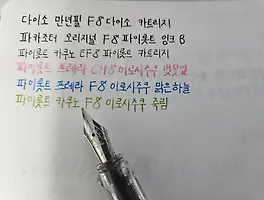 다이소 만년필 F8 다이소 카트리지
파카조터 오리지널 F8 파이롯트 잉크 B
파이롯트 카쿠노 EF8 파이롯트 카트리지
파이롯트 프레라 CM8 이로시주쿠 벚꽃잎
파이롯트 프레라 F8 이로시주쿠 맑은하늘
파이롯트 카쿠노 F8 이로시주쿠 죽림